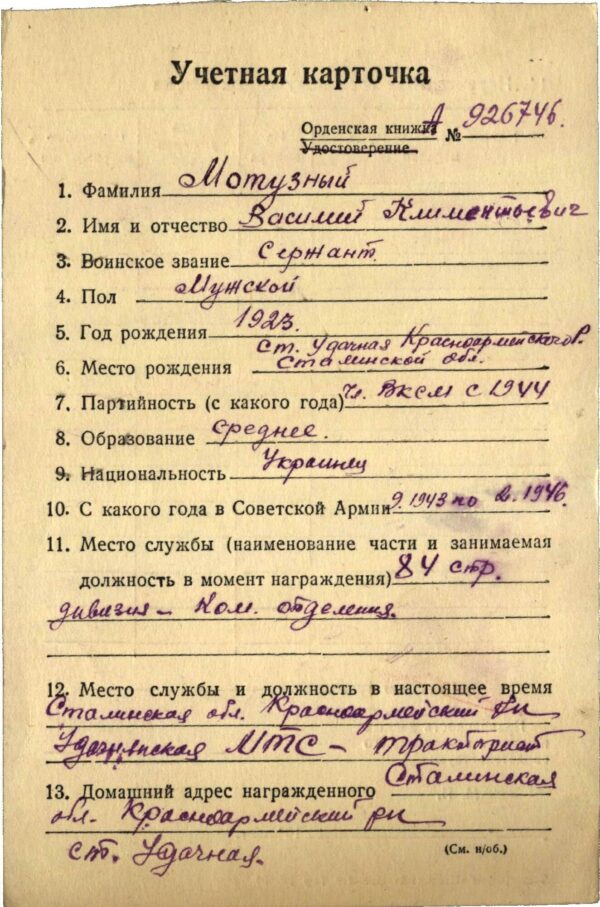 Учетная карточка
Орденская книжка А № 926746.
Удостоверение
1. Фамилия Мотузный
2. Имя и отчество Василий Климентьевич
3. Воинское звание Сержант
4. Пол Мужской
5. Год рождения 1923.
ст. Удачная Красноармейского р.
6. Место рождения Сталинской обл.
7. Партийность (с какого года) чл. ВКСМ с 1944
8. Образование среднее.
9. Национальность Украинец
10. С какого года в Советской Армии 9.1943 по 2.1946.
11. Место службы (наименование части и занимаемая
должность в момент награждения) 84 стр.
дивизия – Ком. отделения.
12. Место службы и должность в настоящее время
Сталинская обл. Красноармейский рн
Удачнинская МТС – тракторист
13. Домашний адрес награжденного Сталинская
обл. Красноармейский рн
ст. Удачная.
(См. н/об.)